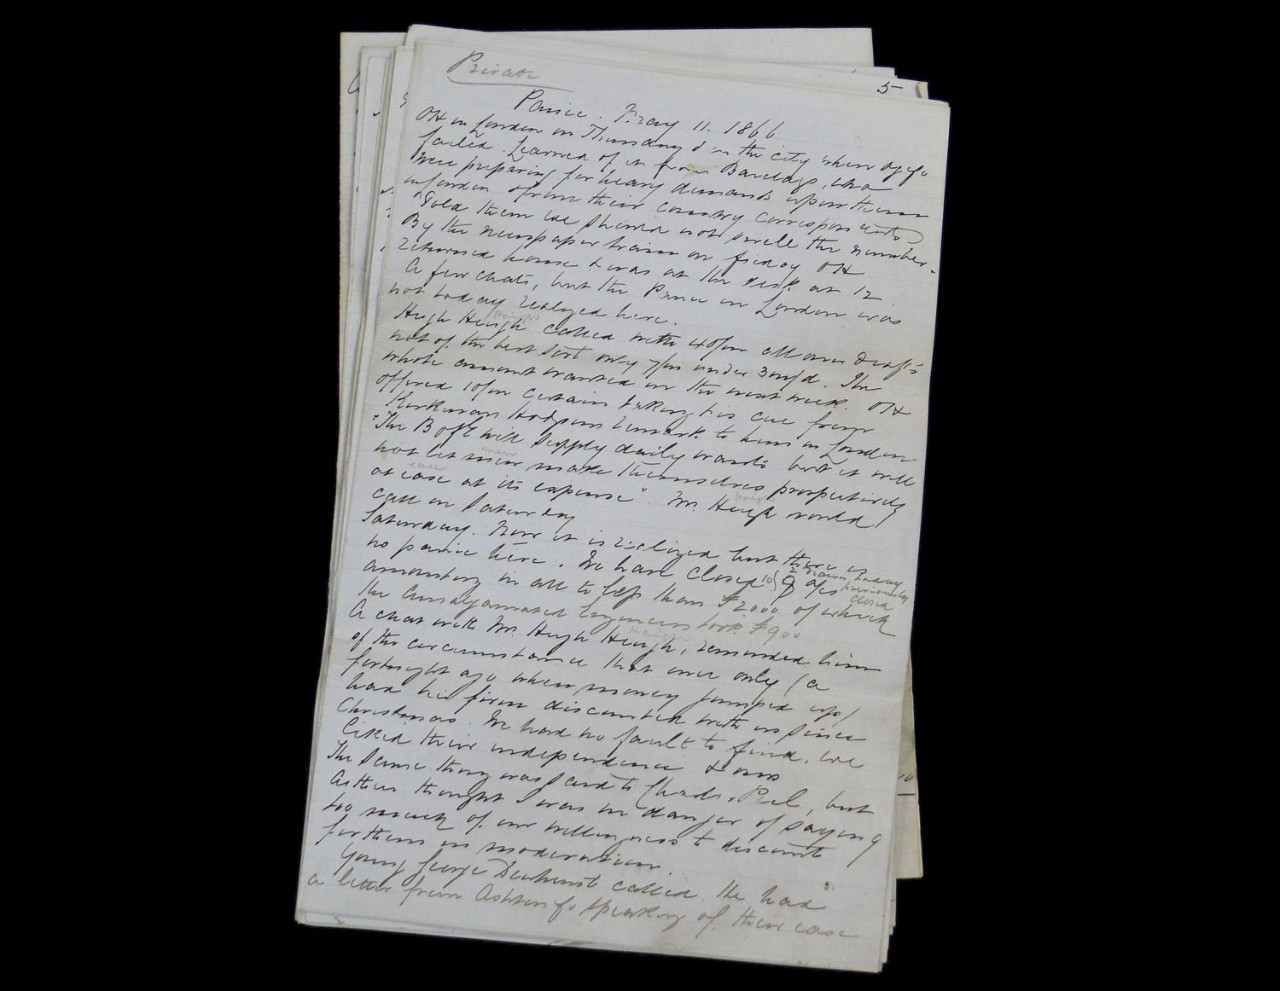 Private
5
Panic. May 11. 1866
OH in London on Thursday & in the city when
failed. Learned of it from Barclays, who
were preparing for heavy demands upon them
in London & from their country correspondents
Told them we should not swell the number.
By the newspaper train on friday OH
returned home & was at the desk at 12
A few chats, but the panic in London was
not today realized here.
Hugh Heugh called with 40/m all over Drafts
not of the best sort only 7/m under 3 m/d. The
whole amount wanted in the next week. OH
offered 10/m certain taking his cue from
Kirkman Hodgsons remark to him in London
"The B of E will supply daily wants but it will
not let men make themselves prospectively
at ease at its expense" Mr. Heugh would
call on Saturday
Saturday. Now it is realized but there is
no panic here. We have closed 10 8 a/cs
drawn today previously closed
amounting in all to less than £2000 of which
the Amalgamated Engineers took £900
A chat with Mr. Hugh Heugh, reminded him
of the circumstance that once only (a
fortnight ago when money jumped up)
had his firm discounted with us since
Christmas. We had no fault to find, we
liked their independence & ours
The same thing was said to Peel, but
thought I was in danger of saying
too much of our willingness to discount
for them in moderation.
Young George Dewhurst called. He had
a letter from speaking of their case